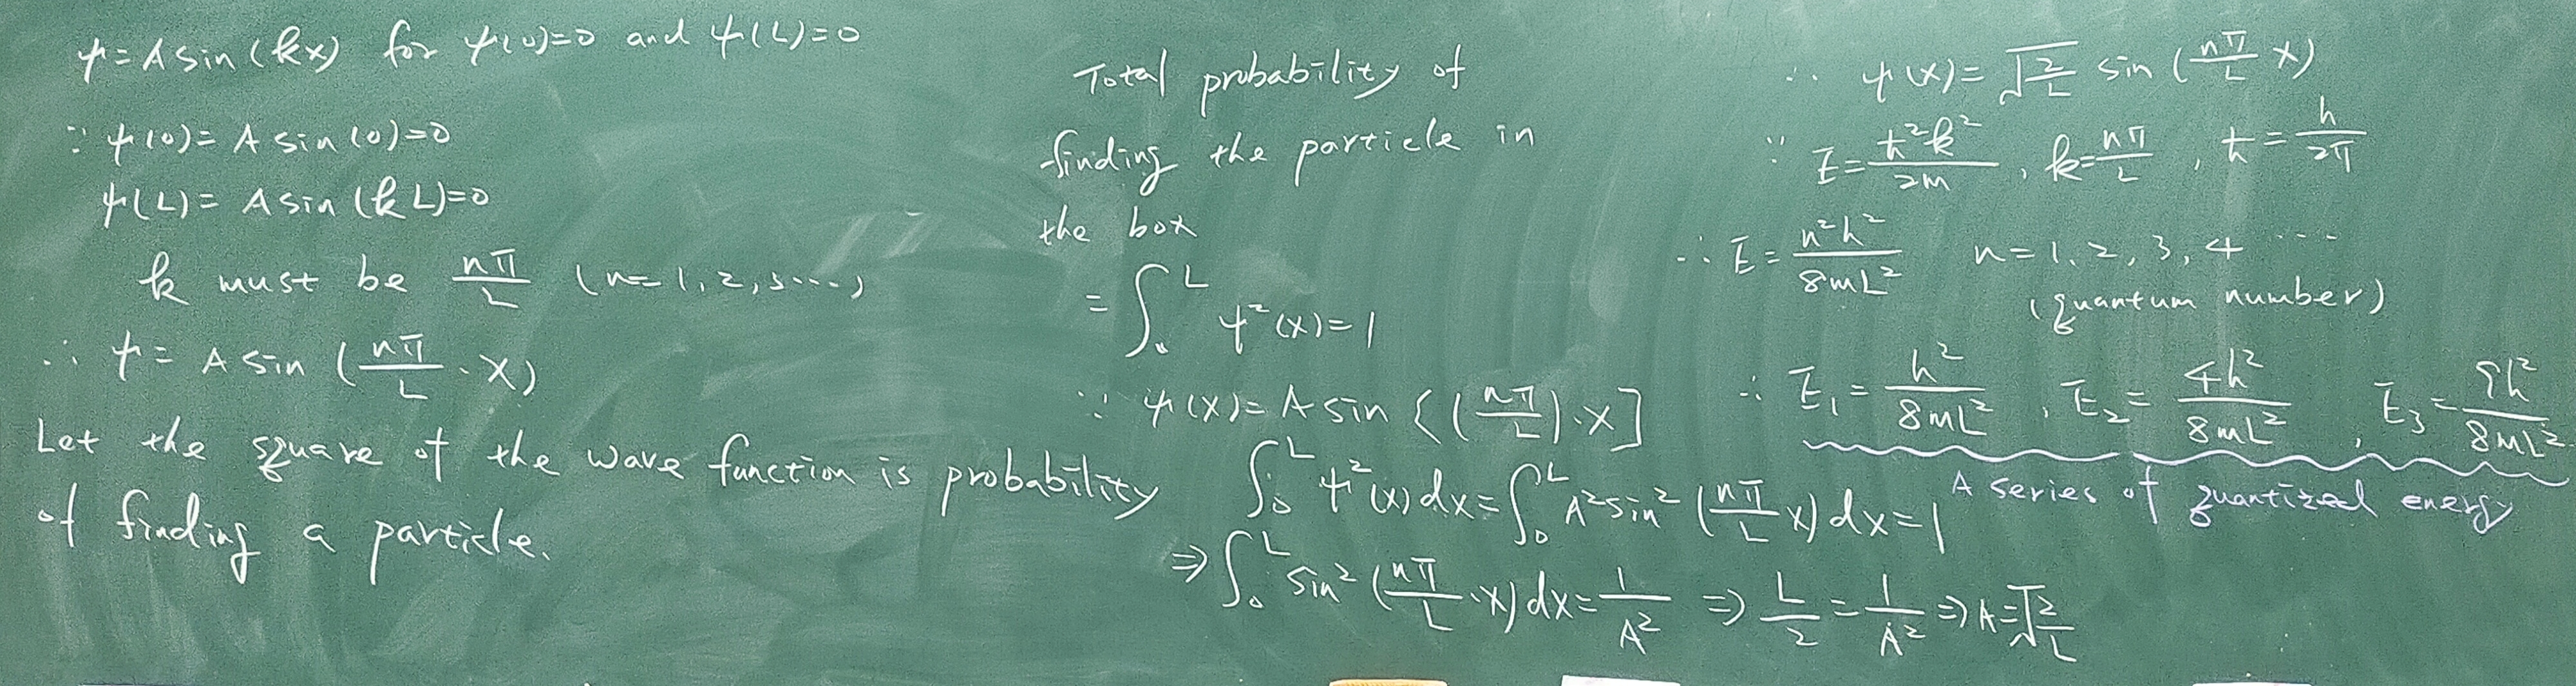 ψ = A sin (kx) for ψ(0)=0 and ψ(L)=0
∵ ψ(0)= A sin (0)=0
ψ(L)= A sin (k L)=0
k must be nπ/L (n=1, 2, 3...)
∴ ψ= A sin (nπ/L · x)
Let the square of the wave function is probability
of finding a particle.
Total probability of
finding the particle in
the box
= ∫₀ᴸ ψ²(x)=1
∵ ψ(x)= A sin [(nπ/L)·x]
∫₀ᴸ ψ²(x) dx=∫₀ᴸ A² sin² (nπ/L x) dx=1
⇒ ∫₀ᴸ sin² (nπ/L · x) dx= 1/A² ⇒ L/2 = 1/A² ⇒ A=√(2/L)
∴ ψ(x)= √(2/L) sin (nπ/L x)
∵ E= ħ²k²/2m , k= nπ/L , ħ= h/2π
∴ E= n²h²/8mL² n=1, 2, 3, 4 ....
(quantum number)
∴ E₁= h²/8mL² , E₂= 4h²/8mL² , E₃= 9h²/8mL²
A series of quantized energy